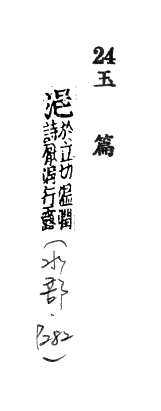 24
玉篇
浥
於立切溼潤
詩厭浥行露
(水部·P282)